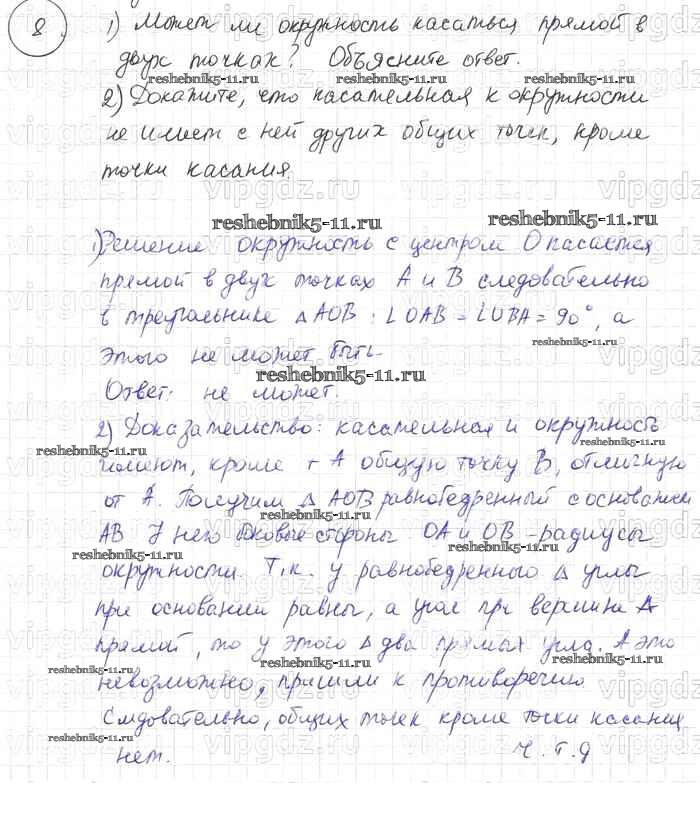 8. 1) Может ли окружность касаться прямой в
двух точках? Объясните ответ.
reshebnik5-11.ru reshebnik5-11.ru reshebnik5-11.ru
2) Докажите, что касательная к окружности
не имеет с ней других общих точек, кроме
точки касания.
reshebnik5-11.ru reshebnik5-11.ru
1) Решение окружность с центром O касается
прямой в двух точках A и B следовательно
в треугольнике △AOB: ∠OAB = ∠OBA = 90°, а
reshebnik5-11.ru
этого не может быть.
reshebnik5-11.ru
Ответ: не может.
2) Доказательство: касательная и окружность
reshebnik5-11.ru reshebnik5-11.ru
имеют, кроме т A общую точку B, отличную
от A. Получим △ AOB равнобедренный с основанием
reshebnik5-11.ru
AB У него боковые стороны OA и OB - радиусы
reshebnik5-11.ru reshebnik5-11.ru
окружности. Т.к. у равнобедренного △ углы
при основании равны, а угол при вершине A
прямой, то у этого △ два прямых угла. А это
reshebnik5-11.ru reshebnik5-11.ru reshebnik5-11.ru
невозможно, пришли к противоречию
Следовательно, общих точек кроме точки касания
reshebnik5-11.ru
нет. Ч.т.д